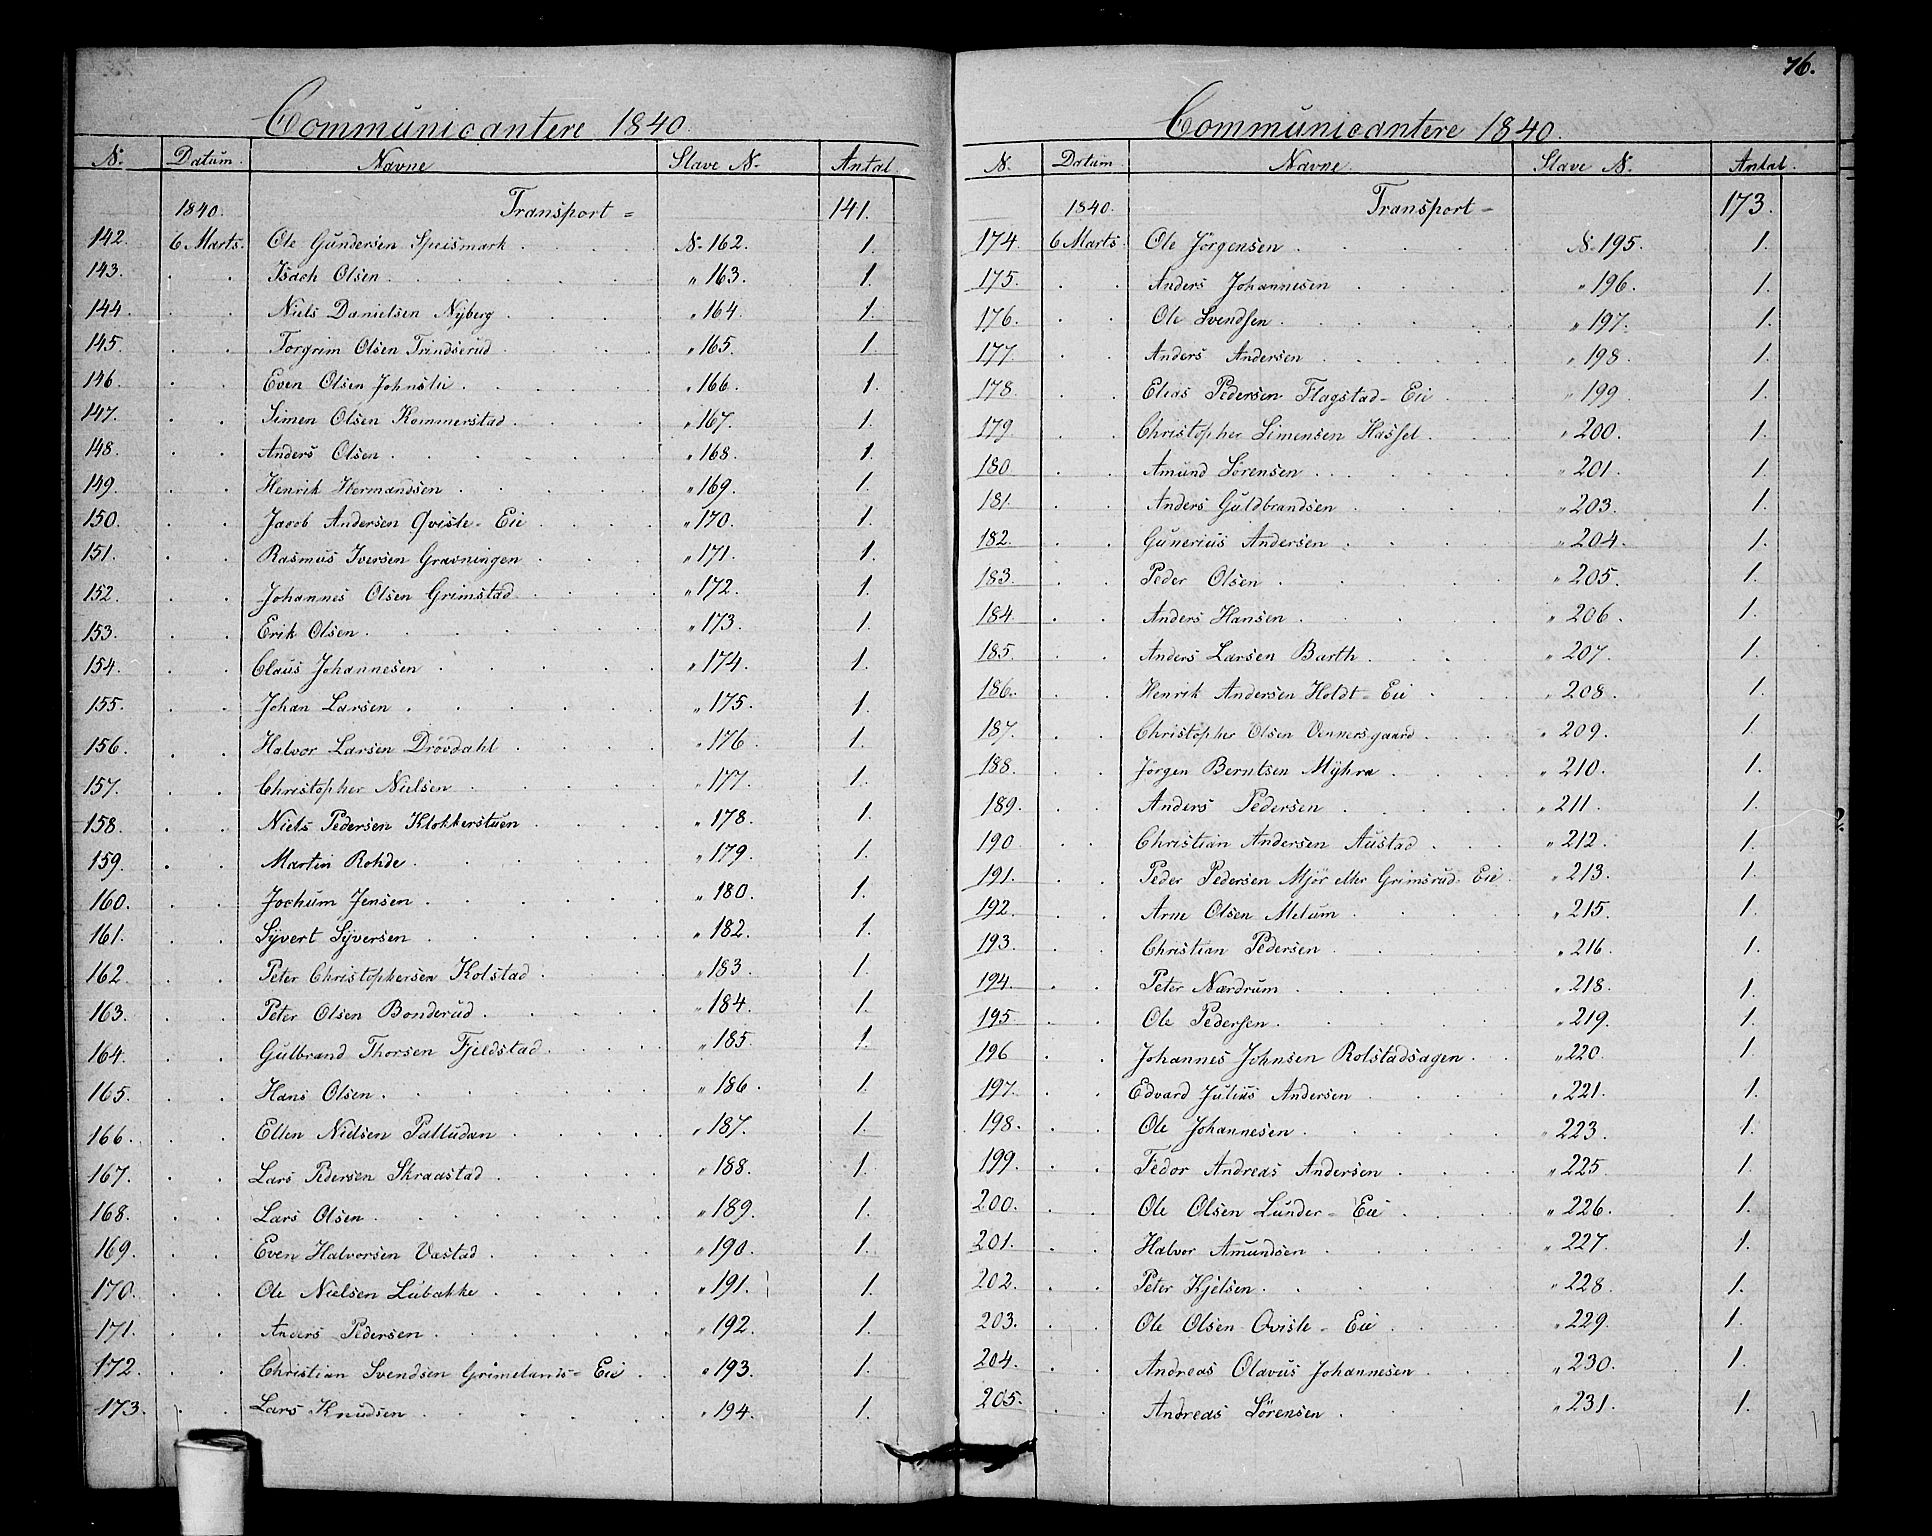 Communicantere 1840.
N. Datum. Navne Slave N. Antal.
1840. Transport = 141.
142. 6 Marts. Ole Gundersen Speismark N. 162. 1.
143. Isach Olsen „ 163. 1.
144. Niels Danielsen Nyberg „ 164. 1.
145. Torgrim Olsen Trindserud „ 165. 1.
146. Even Olsen Johnslie „ 166. 1.
147. Simen Olsen Kommerstad „ 167. 1.
148. Anders Olsen „ 168. 1.
149. Henrik Hermandsen „ 169. 1.
150. Jacob Andersen Qviste-Eie „ 170. 1.
151. Rasmus Iversen Gravningen „ 171. 1.
152. Johannes Olsen Grimstad „ 172. 1.
153. Erik Olsen „ 173. 1.
154. Claus Johannesen „ 174. 1.
155. Johan Larsen „ 175. 1.
156. Halvor Larsen Drøvdahl „ 176. 1.
157. Christopher Nielsen „ 177. 1.
158. Niels Pedersen Klokkerstuen „ 178. 1.
159. Martin Rohde „ 179. 1.
160. Jochum Jensen „ 180. 1.
161. Syvert Syversen „ 182. 1.
162. Peter Christophersen Kolstad „ 183. 1.
163. Peter Olsen Bonderud „ 184. 1.
164. Gulbrand Thorsen Fjeldstad „ 185. 1.
165. Hans Olsen „ 186. 1.
166. Ellen Nielsen Palludan „ 187. 1.
167. Lars Pedersen Skraastad „ 188. 1.
168. Lars Olsen „ 189. 1.
169. Even Halvorsen Vastad „ 190. 1.
170. Ole Nielsen Lubakke „ 191. 1.
171. Anders Pedersen „ 192. 1.
172. Christian Svendsen Grimelands-Eie „ 193. 1.
173. Lars Knudsen „ 194. 1.
76.
Communicantere 1840.
N. Datum. Navne. Slave N. Antal.
1840. Transport = 173.
174. 6 Marts. Ole Jörgensen N. 195. 1.
175. Anders Johannesen „ 196. 1.
176. Ole Svendsen „ 197. 1.
177. Anders Andersen „ 198. 1.
178. Elias Pedersen Flagstad-Eie „ 199 1.
179. Christopher Simensen Hassel „ 200. 1.
180. Amund Sörensen „ 201. 1.
181. Anders Guldbrandsen „ 203. 1.
182. Gunerius Andersen „ 204. 1.
183. Peder Olsen „ 205. 1.
184. Anders Hansen „ 206. 1.
185. Anders Larsen Barth „ 207. 1.
186. Henrik Andersen Holdt-Eie „ 208. 1.
187. Christopher Olsen Vennersgaard „ 209. 1.
188. Jörgen Berntsen Myhra „ 210. 1.
189. Anders Pedersen „ 211. 1.
190 Christian Andersen Austad „ 212. 1.
191. Peder Pedersen Mjör eller Grimsrud-Eie „ 213. 1.
192. Arne Olsen Melum „ 215. 1.
193. Christian Pedersen „ 216. 1.
194. Peter Nærdrum „ 218. 1.
195 Ole Pedersen „ 219. 1.
196 Johannes Johnsen Rolstadsagen „ 220. 1.
197. Edvard Julius Andersen „ 221. 1.
198. Ole Johannesen „ 223. 1.
199. Fedor Andreas Andersen „ 225 1.
200. Ole Olsen Lunder-Eie „ 226. 1.
201. Halvor Amundsen „ 227. 1.
202. Peter Kjelsen „ 228 1.
203. Ole Olsen Qviste-Eie „ 229. 1.
204. Andreas Olavus Johannesen „ 230. 1.
205. Andreas Sörensen „ 231. 1.